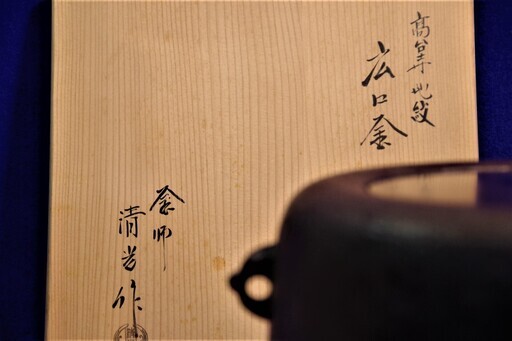 高台寺地紋
広口釜
釜師
清光作